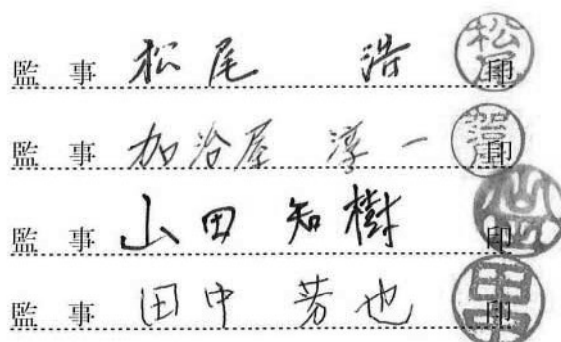 監事 松尾 浩 印
監事 加治屋 淳一 印
監事 山田 知樹 印
監事 田中 芳也 印